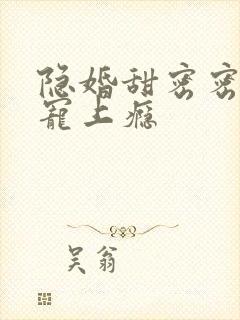 隐婚甜密密
宠上瘾
吴翁